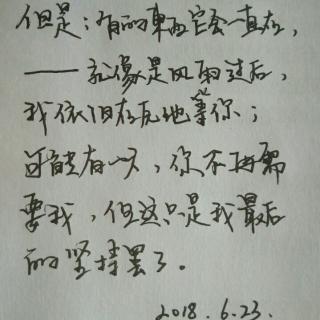 但是：有的東西它会一直在，
——就像是风雨过后，
我依旧在原地等你；
可能有一天，你不再需
要我，但这只是我最后
的坚持罢了。
2018.6.23.